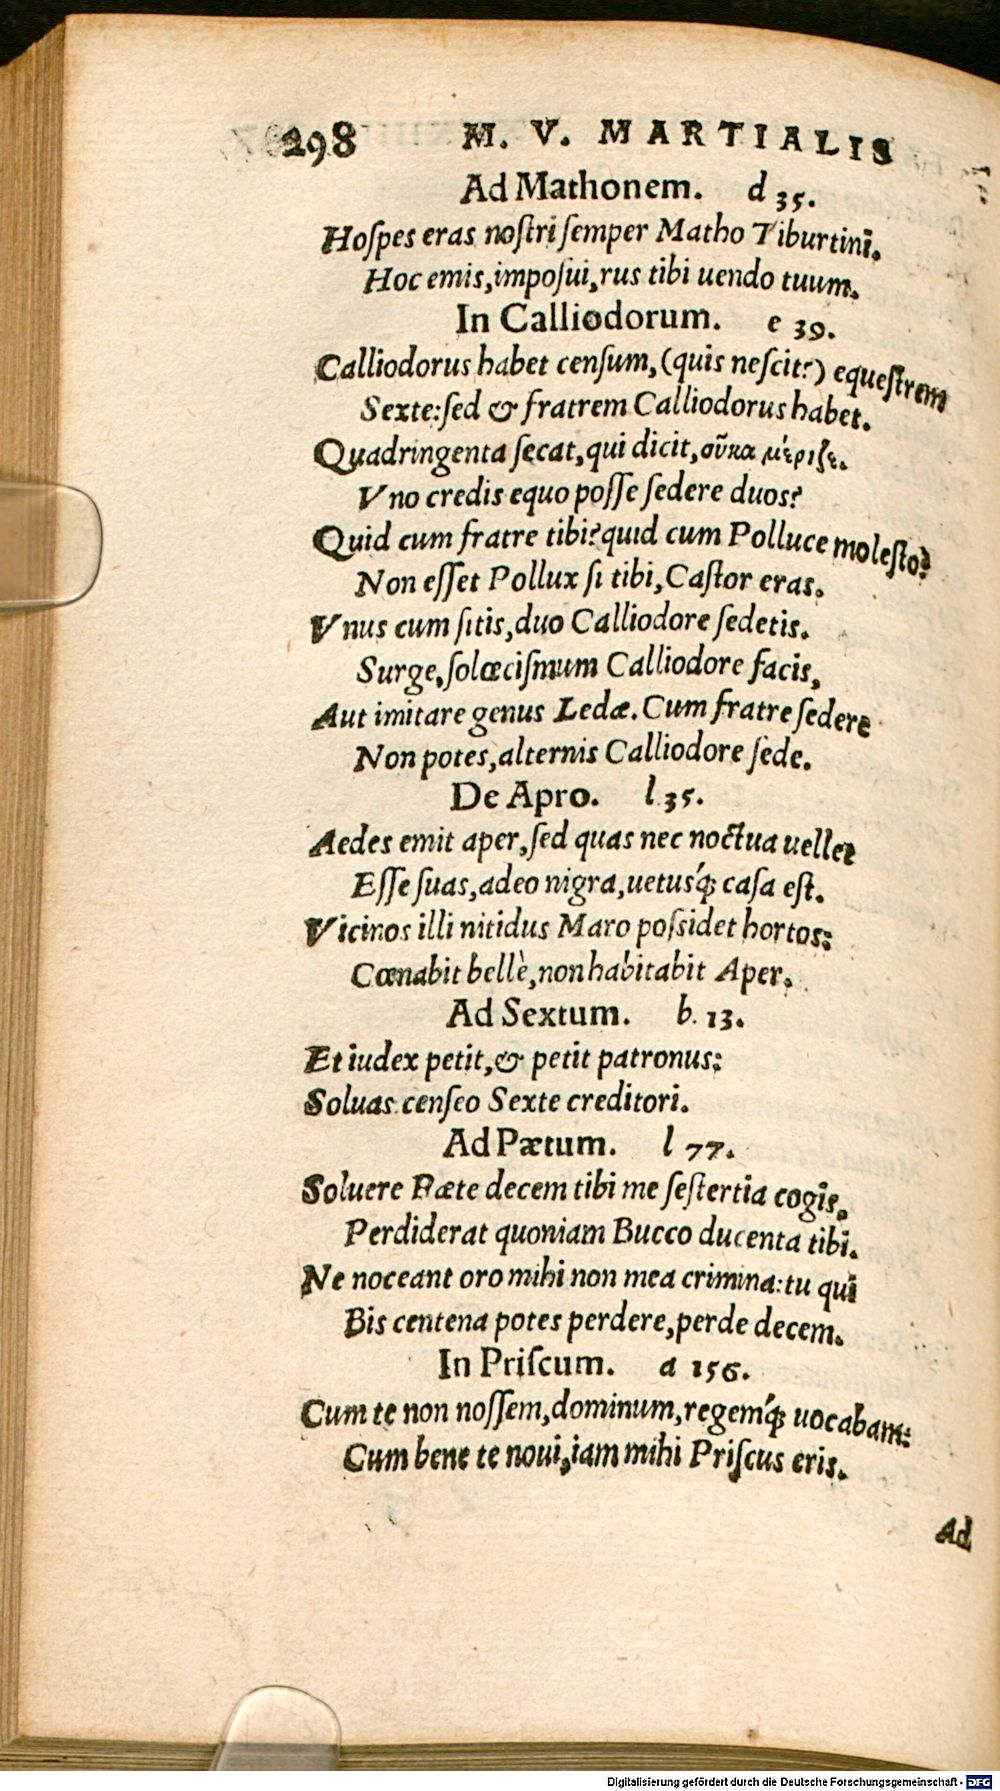 298 M. V. MARTIALIS
Ad Mathonem. d 35.
Hoſpes eras noſtri ſemper Matho Tiburtini.
Hoc emis, impoſui, rus tibi uendo tuum.
In Calliodorum. e 39.
Calliodorus habet cenſum, (quis neſcit?) equeſtrem
Sexte: ſed & fratrem Calliodorus habet.
Quadringenta ſecat, qui dicit, σῦκα μέριζε.
Vno credis equo poſſe ſedere duos?
Quid cum fratre tibi? quid cum Polluce moleſto?
Non eſſet Pollux ſi tibi, Caſtor eras.
Vnus cum ſitis, duo Calliodore ſedetis.
Surge, ſolœciſmum Calliodore facis,
Aut imitare genus Ledæ. Cum fratre ſedere
Non potes, alternis Calliodore ſede.
De Apro. l 35.
Aedes emit aper, ſed quas nec noctua uellet
Eſſe ſuas, adeo nigra, uetusq́ꝫ caſa eſt.
Vicinos illi nitidus Maro poſsidet hortos:
Cœnabit bellè, non habitabit Aper.
Ad Sextum. b. 13.
Et iudex petit, & petit patronus:
Soluas cenſeo Sexte creditori.
Ad Pætum. l 77.
Soluere Pæte decem tibi me ſeſtertia cogis,
Perdiderat quoniam Bucco ducenta tibi.
Ne noceant oro mihi non mea crimina: tu qui
Bis centena potes perdere, perde decem.
In Priſcum. a 156.
Cum te non noſſem, dominum, regemq́ꝫ uocabam:
Cum bene te noui, iam mihi Priſcus eris.
Ad
Digitalisierung gefördert durch die Deutsche Forschungsgemeinschaft - DFG